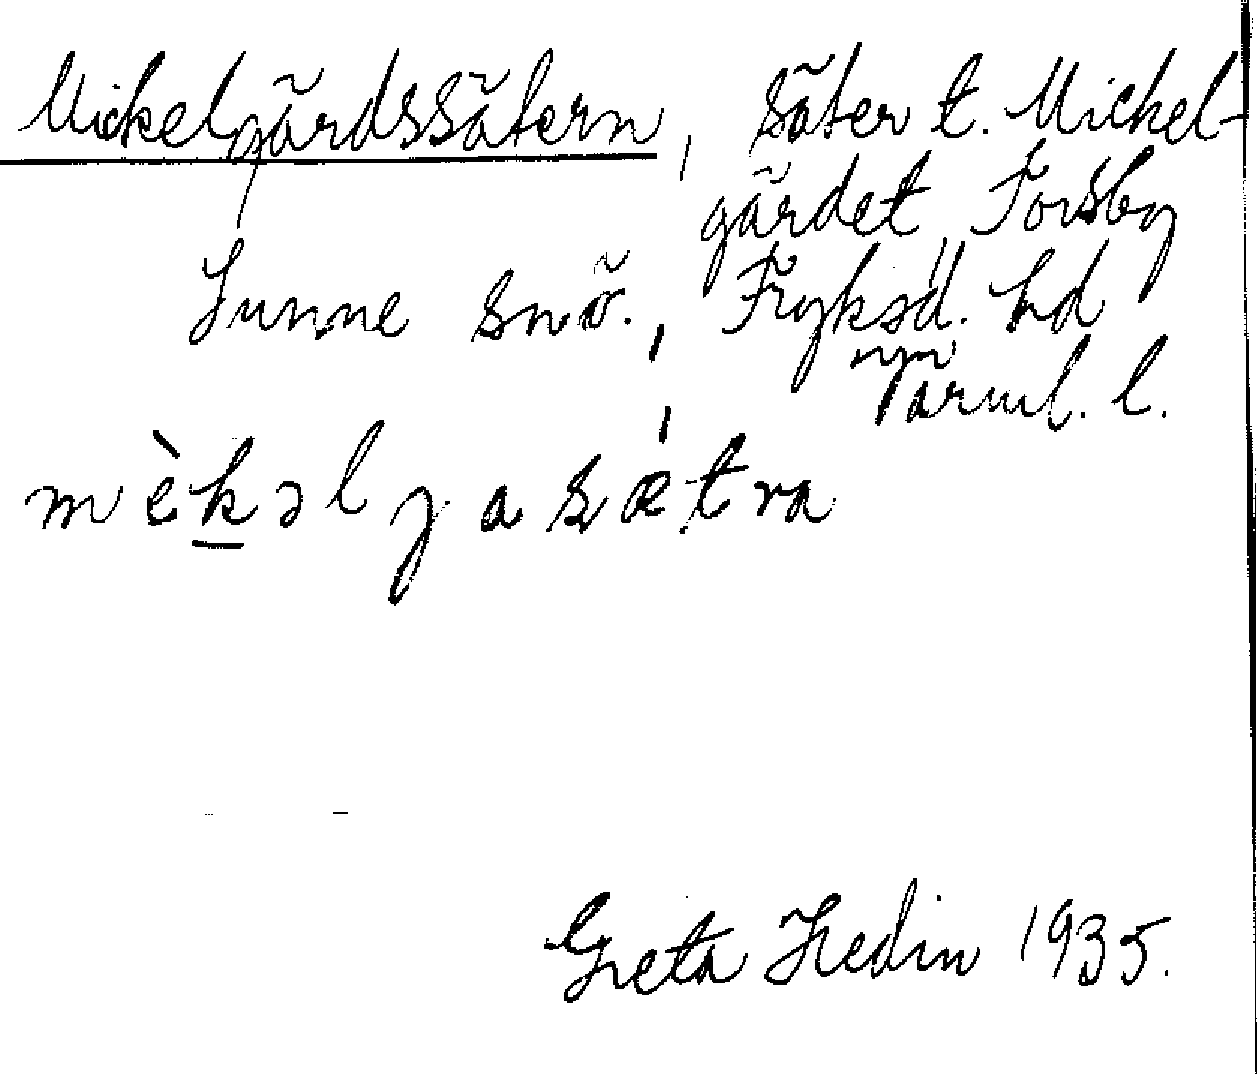 Mickelgärdssätern, säter t. Mickel-
gärdet, Forsby
Sunne snö., Fryksd. hd
Värml. l.
mèkəljasætra
Greta Hedin 1935.